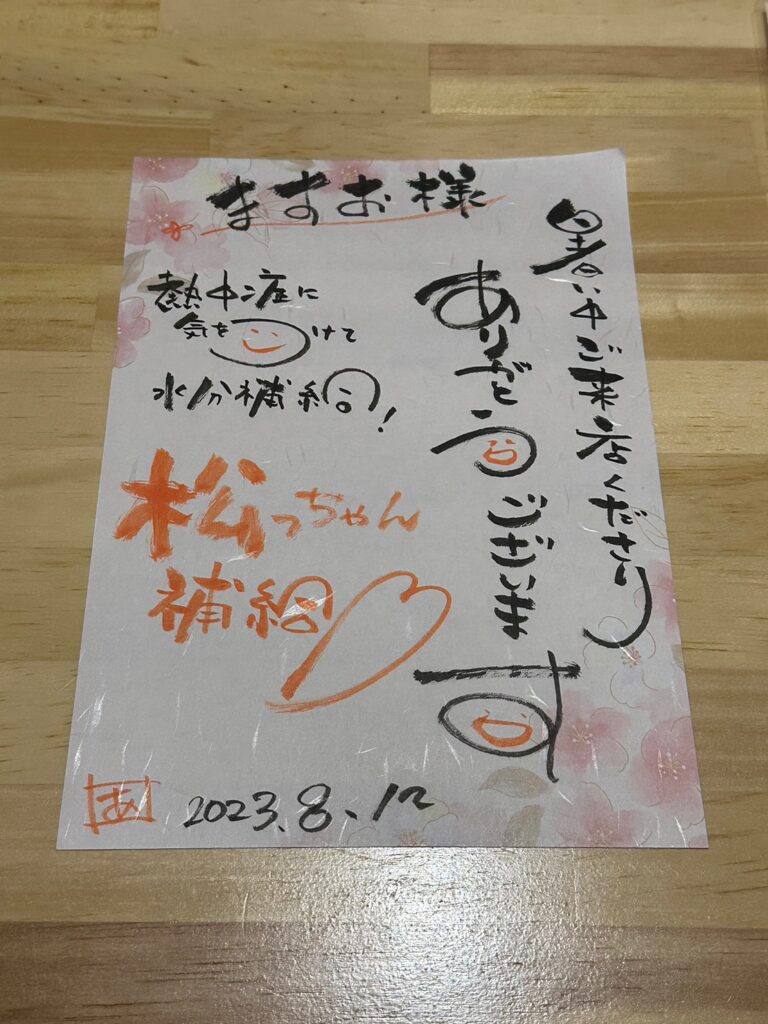 ますお様
暑い中ご来店くださり
ありがとう
ございます
熱中症に
気をつけて
水分補給!
松っちゃん
補給
あ
2023.8.12